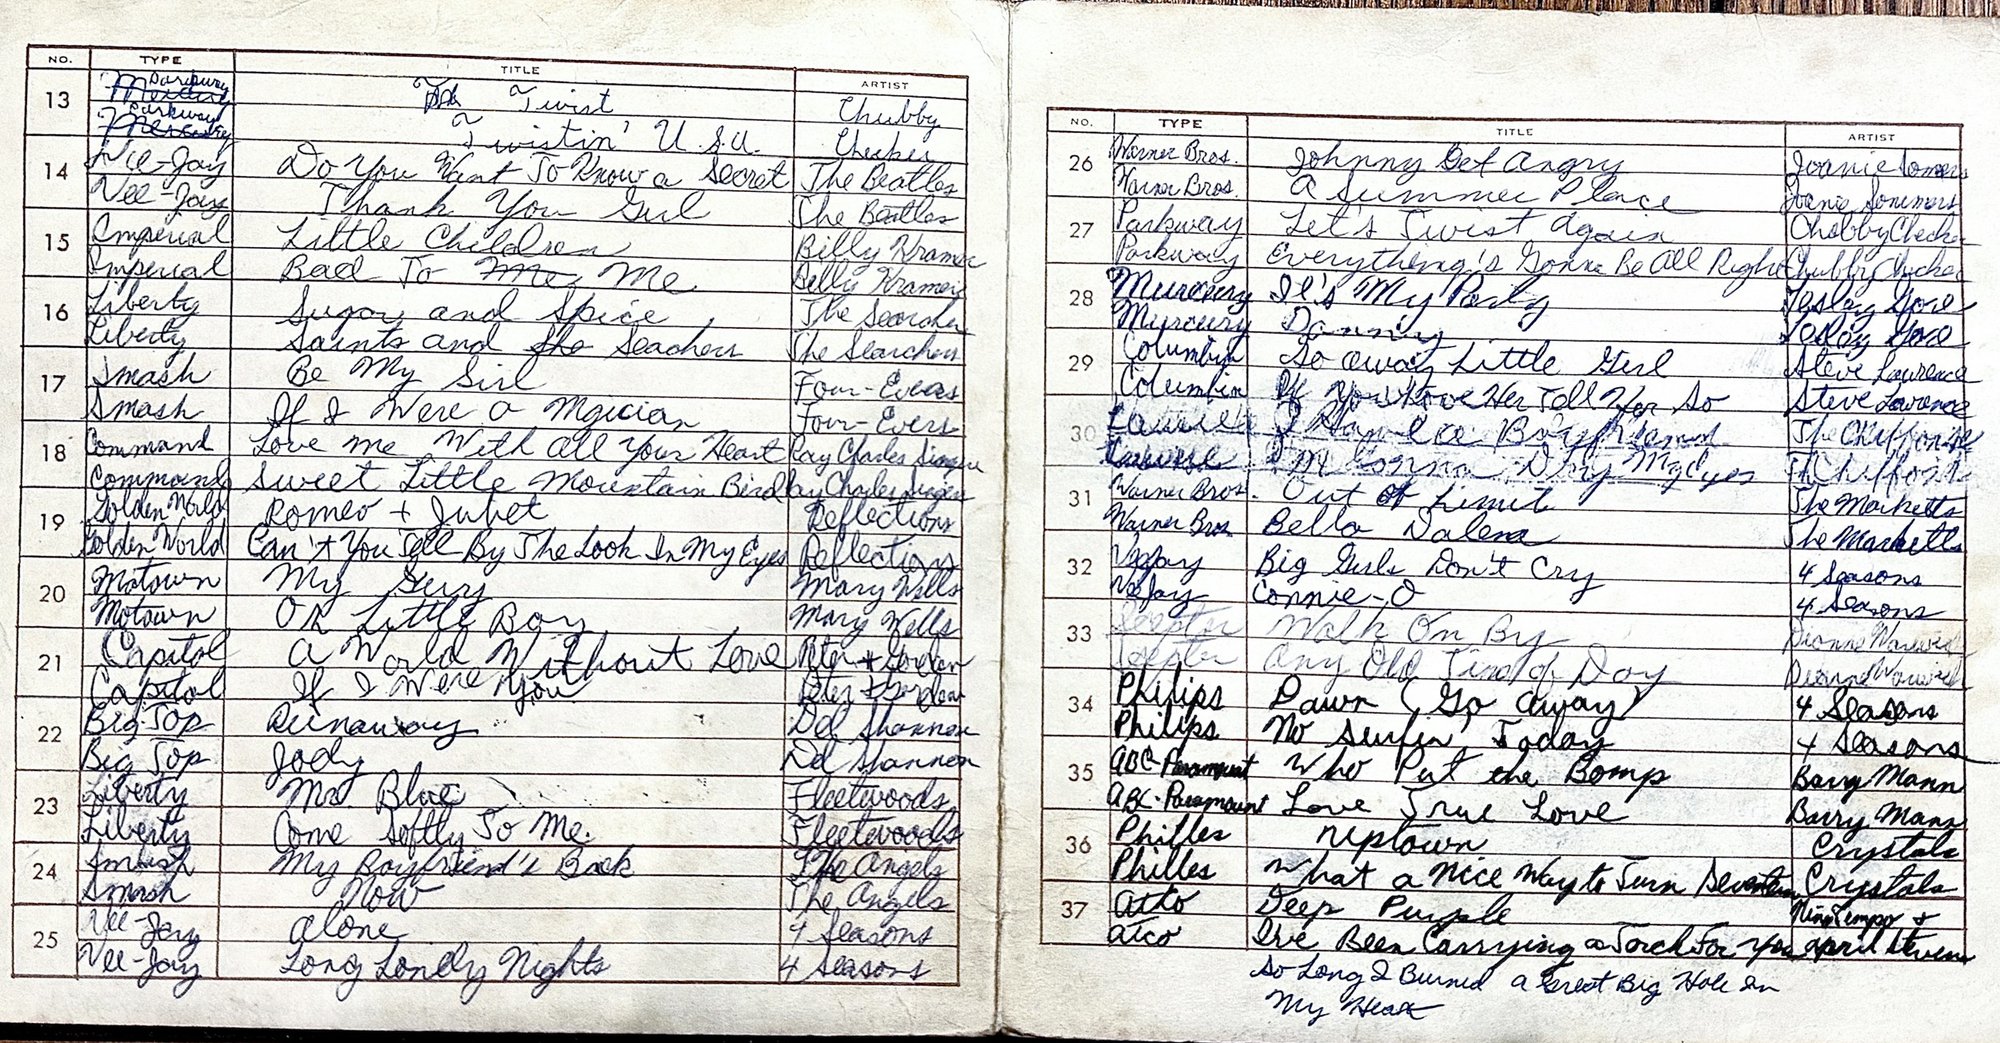 NO. TYPE TITLE ARTIST
13 Parkway The Twist Chubby
Parkway Twistin' U.S.A. Checker
14 Vee-Jay Do You Want To Know a Secret The Beatles
Vee-Jay Thank You Girl The Beatles
15 Imperial Little Children Billy Kramer
Imperial Bad To Me Me Billy Kramer
16 Liberty Sugar and Spice The Searchers
Liberty Saints and the Seachers The Searchers
17 Smash Be My Girl Four-Evers
Smash If I Were a Mgician Four-Evers
18 Command Love Me With All Your Heart Ray Charles Singers
Command Sweet Little Mountain Bird Ray Charles Singers
19 Golden World Romeo + Juliet Reflections
Golden World Can't You Tell By The Look In My Eyes Reflections
20 Motown My Guy Mary Wells
Motown Oh Little Boy Mary Wells
21 Capitol A World Without Love Peter + Gordon
Capitol If I Were You Peter + Gordon
22 Big-Top Runaway Del Shannon
Big Top Jody Del Shannon
23 Liberty Mr. Blue Fleetwoods
Liberty Come Softly To Me. Fleetwoods
24 Smash My Boyfriend's Back The Angels
Smash Now The Angels
25 Vee-Jay Alone 4 Seasons
Vee-Jay Long Lonely Nights 4 Seasons
NO. TYPE TITLE ARTIST
26 Warner Bros. Johnny Get Angry Joanie Somers
Warner Bros. A Summer Place Joanie Sommers
27 Parkway Let's Twist Again Chubby Checker
Parkway Everything's Gonna Be All Right Chubby Checker
28 Murcury It's My Party Lesley Gore
Murcury Danny Lesley Gore
29 Columbia Go Away Little Girl Steve Lawrence
Columbia If You Love Her Tell Her So Steve Lawrence
30 Laurie I Have a Boyfriend The Chiffons
I'm Gonna Dry My Eyes The Chiffons
31 Warner Bros. Out Of Limit The Marketts
Warner Bros. Bella Dalena The Marketts
32 VeeJay Big Girls Don't Cry 4 Seasons
VeeJay Connie-O 4 Seasons
33 Scepter Walk On By Dionne Warwick
Scepter Any Old Time of Day Dionne Warwick
34 Philips Dawn (Go Away) 4 Seasons
Philips No Surfin' Today 4 Seasons
35 ABC-Paramount Who Put the Bomp Barry Mann
ABC-Paramount Love True Love Barry Mann
36 Philles Uptown Crystals
Philles What a Nice Way to Turn Seventeen Crystals
37 Atko Deep Purple Nino Tempo +
Atco I've Been Carrying a Torch For You April Stevens
So Long I Burned a Great Big Hole In
My Heart